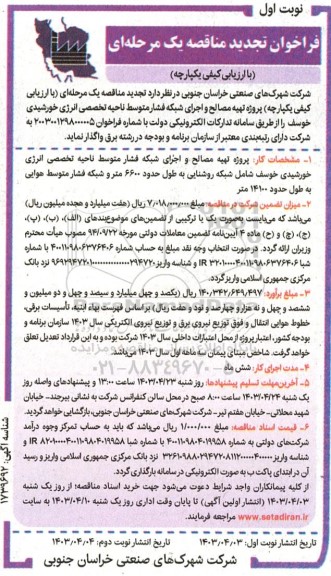 نوبت اول
فراخوان تجدید مناقصه یک مرحله‌ای
(با ارزیابی کیفی یکپارچه)
شرکت شهرک‌های صنعتی خراسان جنوبی در نظر دارد تجدید مناقصه یک مرحله‌ای (با ارزیابی
کیفی یکپارچه) پروژه تهیه مصالح و اجرای شبکه فشار متوسط ناحیه تخصصی انرژی خورشیدی
خوسف را از طریق سامانه تدارکات الکترونیکی دولت با شماره فراخوان ۲۰۰۳۰۰۱۲۹۸۰۰۰۰۰۵ به
شرکت دارای رتبه‌بندی معتبر از سازمان برنامه و بودجه در رشته برق واگذار نماید.
۱- مشخصات کار: پروژه تهیه مصالح و اجرای شبکه فشار متوسط ناحیه تخصصی انرژی
خورشیدی خوسف شامل شبکه روشنایی به طول حدود ۶۶۰۰ متر و شبکه فشار متوسط هوایی
به طول حدود ۱۴۱۰۰ متر
۲- میزان تضمین شرکت در مناقصه: مبلغ ۷/۰۱۸/۰۰۰/۰۰۰ ریال (هفت میلیارد و هجده میلیون ریال)
می‌باشد که می‌بایست به‌صورت یک یا ترکیبی از تضمین‌های موضوع بندهای (الف)، (ب)، (پ)،
(ج)، (چ) و (ح) ماده ۴ آیین‌نامه تضمین معاملات دولتی مورخه ۹۴/۰۹/۲۲ مصوب هیأت محترم
وزیران ارائه گردد. در صورت انتخاب وجه نقد مبلغ به حساب شماره ۴۰۰۱۱۰۹۸۰۶۳۷۶۴۰۶ با شماره
شبا
مرکزی جمهوری اسلامی واریز گردد.
۳- مبلغ برآورد: ۱۴۰/۳۴۲/۶۴۹/۴۹۷ ریال (یکصد و چهل میلیارد و سیصد و چهل و دو میلیون و
ششصد و چهل و نه هزارو چهارصد و نود و هفت ریال) بر اساس فهرست بهاء ابنیه، تأسیسات برقی،
خطوط هوایی انتقال و فوق توزیع نیروی برق و توزیع نیروی الکتریکی سال ۱۴۰۳ سازمان برنامه و
بودجه کشور، اعتبار پروژه از محل اعتبارات داخلی سال ۱۴۰۳ شرکت بوده و به این قرارداد تعدیل تعلق
خواهد گرفت. شاخص مبنای پیمان سه ماهه اول سال ۱۴۰۳ می‌باشد.
۴- مدت اجرای کار: شش ماه
۵- آخرین‌مهلت تسلیم پیشنهادها: روز شنبه ۱۴۰۳/۰۴/۲۳ ساعت ۱۳:۰۰ و پیشنهادهای واصله روز
یک شنبه ۱۴۰۳/۰۴/۲۴ ساعت ۸:۰۰ صبح در محل سالن کنفرانس شرکت به نشانی بیرجند- خیابان
شهید محلاتی- خیابان هفتم تیر- شرکت شهرک‌های صنعتی خراسان جنوبی، بازگشایی خواهد گردید.
۶- قیمت اسناد مناقصه: مبلغ ۱/۰۰۰/۰۰۰ ریال می‌باشد که باید به حساب تمرکز وجوه درآمد
شرکت‌های دولتی به شماره ۴۰۰۱۱۰۹۸۰۴۰۱۹۹۵۸ با شماره شبا
شناسه واریز نزد بانک مرکزی جمهوری اسلامی واریز و رسید
آن در ابتدای پاکت ب به صورت الکترونیکی در سامانه بارگذاری گردد.
از کلیه پیمانکاران واجد شرایط دعوت می‌شود جهت خرید اسناد مناقصه؛ از روز یک شنبه
۱۴۰۳/۰۴/۰۳ (انتشار اولین آگهی) تا پایان وقت اداری روز یک شنبه ۱۴۰۳/۰۴/۱۰ به سایت
www.setadiran.ir مراجعه فرمایند.
تاریخ انتشار نوبت اول: ۱۴۰۳/۰۴/۰۳ تاریخ انتشار نوبت دوم: ۱۴۰۳/۰۴/۰۴
شرکت شهرک‌های صنعتی خراسان جنوبی
شناسه آگهی: ۱۷۳۹۶۹۲
۰۲۱-۸۸۳۴۹۶۷۰